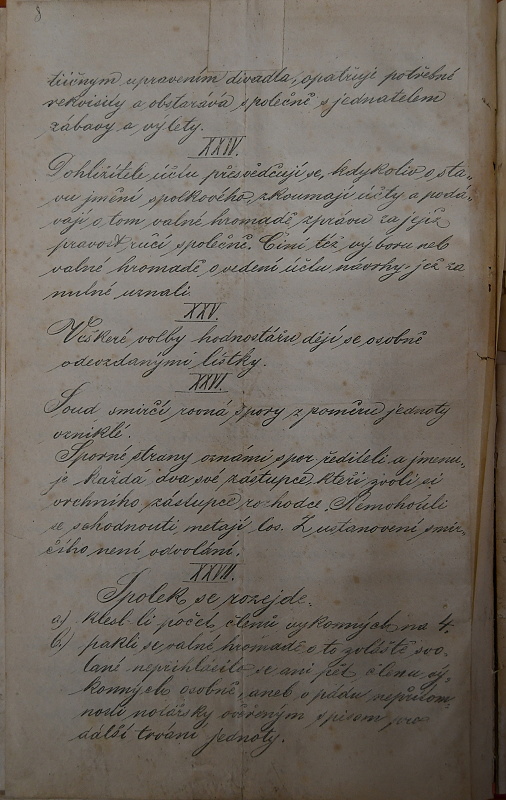 8
tičným upravením divadla, opatřuje potřebné
rekvisity a obstarává společně s jednatelem
zábavy a výlety.
XXIV.
Dohlížitelé účtů přesvědčují se, kdykoliv o sta-
vu jmění spolkového, zkoumají účty a podá-
vají o tom valné hromadě zprávu za jejíž
pravost ručí společně. Činí též výboru neb
valné hromadě o vedení účtu návrhy, jež za
nutné uznali.
XXV.
Veškeré volby hodnostářů dějí se osobně
odevzdanými lístky.
XXVI.
Soud smírčí rovná spory z poměru jednoty
vzniklé.
Sporné strany oznámí spor řediteli a jmenu-
je každá dva své zástupce, kteří zvolí si
vrchního zástupce rozhodce. Nemohouli
se schodnouti, metají los. Z ustanovení smír-
čího není odvolání.
XXVII.
Spolek se rozejde.
a) klesl-li počet členů výkonných na 4.
b) pakli se valné hromadě o to zvláště svo-
lané nepřihlásilo se ani pět členů vý-
konných osobně, aneb v pádu nepřítom-
nosti notářsky ověřeným spisem pro
další trvání jednoty.